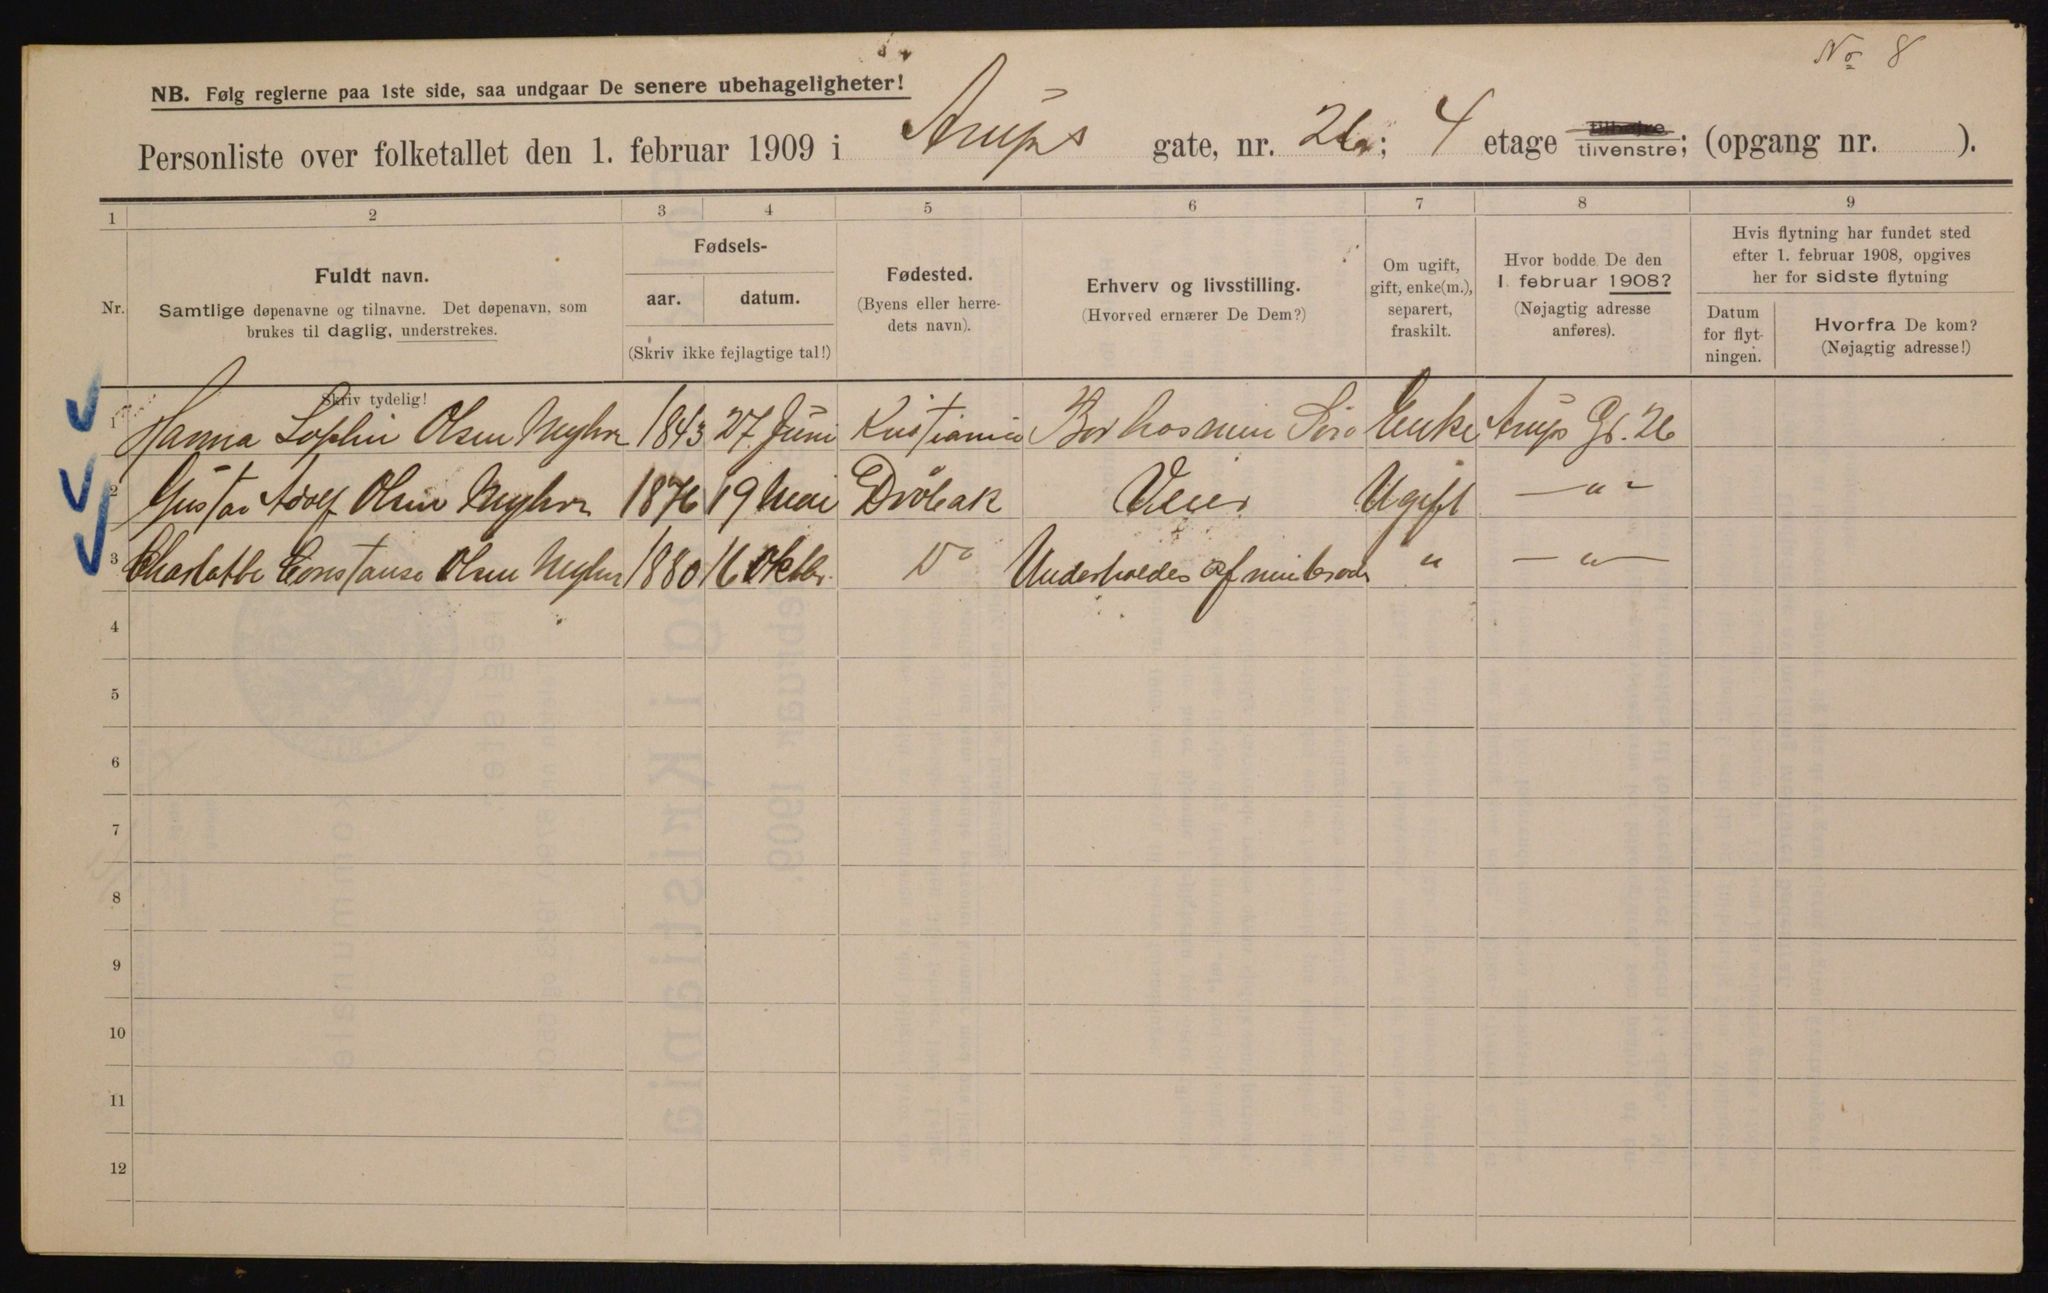 No 8
NB. Følg reglerne paa 1ste side, saa undgaar De senere ubehageligheter!
Personliste over folketallet den 1. februar 1909 i Arups gate, nr. 26; 4 etage tilhøjre tilvenstre; (opgang nr. ).
1 2 3 4 5 6 7 8 9
Nr.
Fuldt navn.
Samtlige døpenavne og tilnavne. Det døpenavn, som
brukes til daglig, understrekes.
Skriv tydelig!
Fødsels-
aar. datum.
(Skriv ikke fejlagtige tal!)
Fødested.
(Byens eller herre-
dets navn).
Erhverv og livsstilling.
(Hvorved ernærer De Dem?)
Om ugift,
gift, enke(m.),
separert,
fraskilt.
Hvor bodde De den
1. februar 1908?
(Nøjagtig adresse
anføres).
Hvis flytning har fundet sted
efter 1. februar 1908, opgives
her for sidste flytning
Datum
for flyt-
ningen.
Hvorfra De kom?
(Nøjagtig adresse!)
1 Hanna Sophie Olsen 1843 27 Juni Kristiania Bor hos min Enke Arups Gt. 26
2 Gustav Adolf Olsen 1876 19 Mai Drøbak Ugift — " -
3 Charlotte Constanse Olsen 1880 16 Oktbr. Do Underholdes af min " — " —
4
5
6
7
8
9
10
11
12